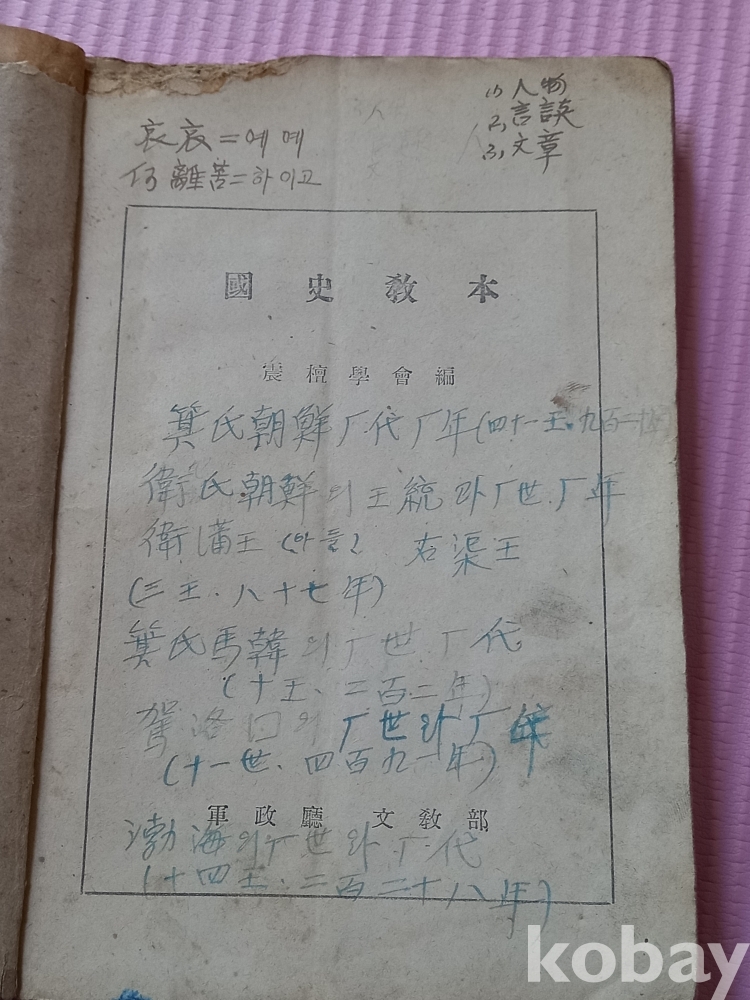 哀哀=예예
何離苦=하이고
(1) 人物
(2) 言談
(3) 文章
國史敎本
震檀學會編
箕氏朝鮮厂代厂年(四十一王.九百二十年)
衛氏朝鮮의 王統과 厂世.厂年
衛滿王 (아들) 右渠王
(三王.八十七年)
箕氏馬韓의 厂世 厂代
(十王、二百二年)
駕洛口의 厂世와 厂年
(十一世、四百九一年)
軍政廳 文敎部
渤海의 厂世와 厂代
(十四王、二百二十八年)
kobay